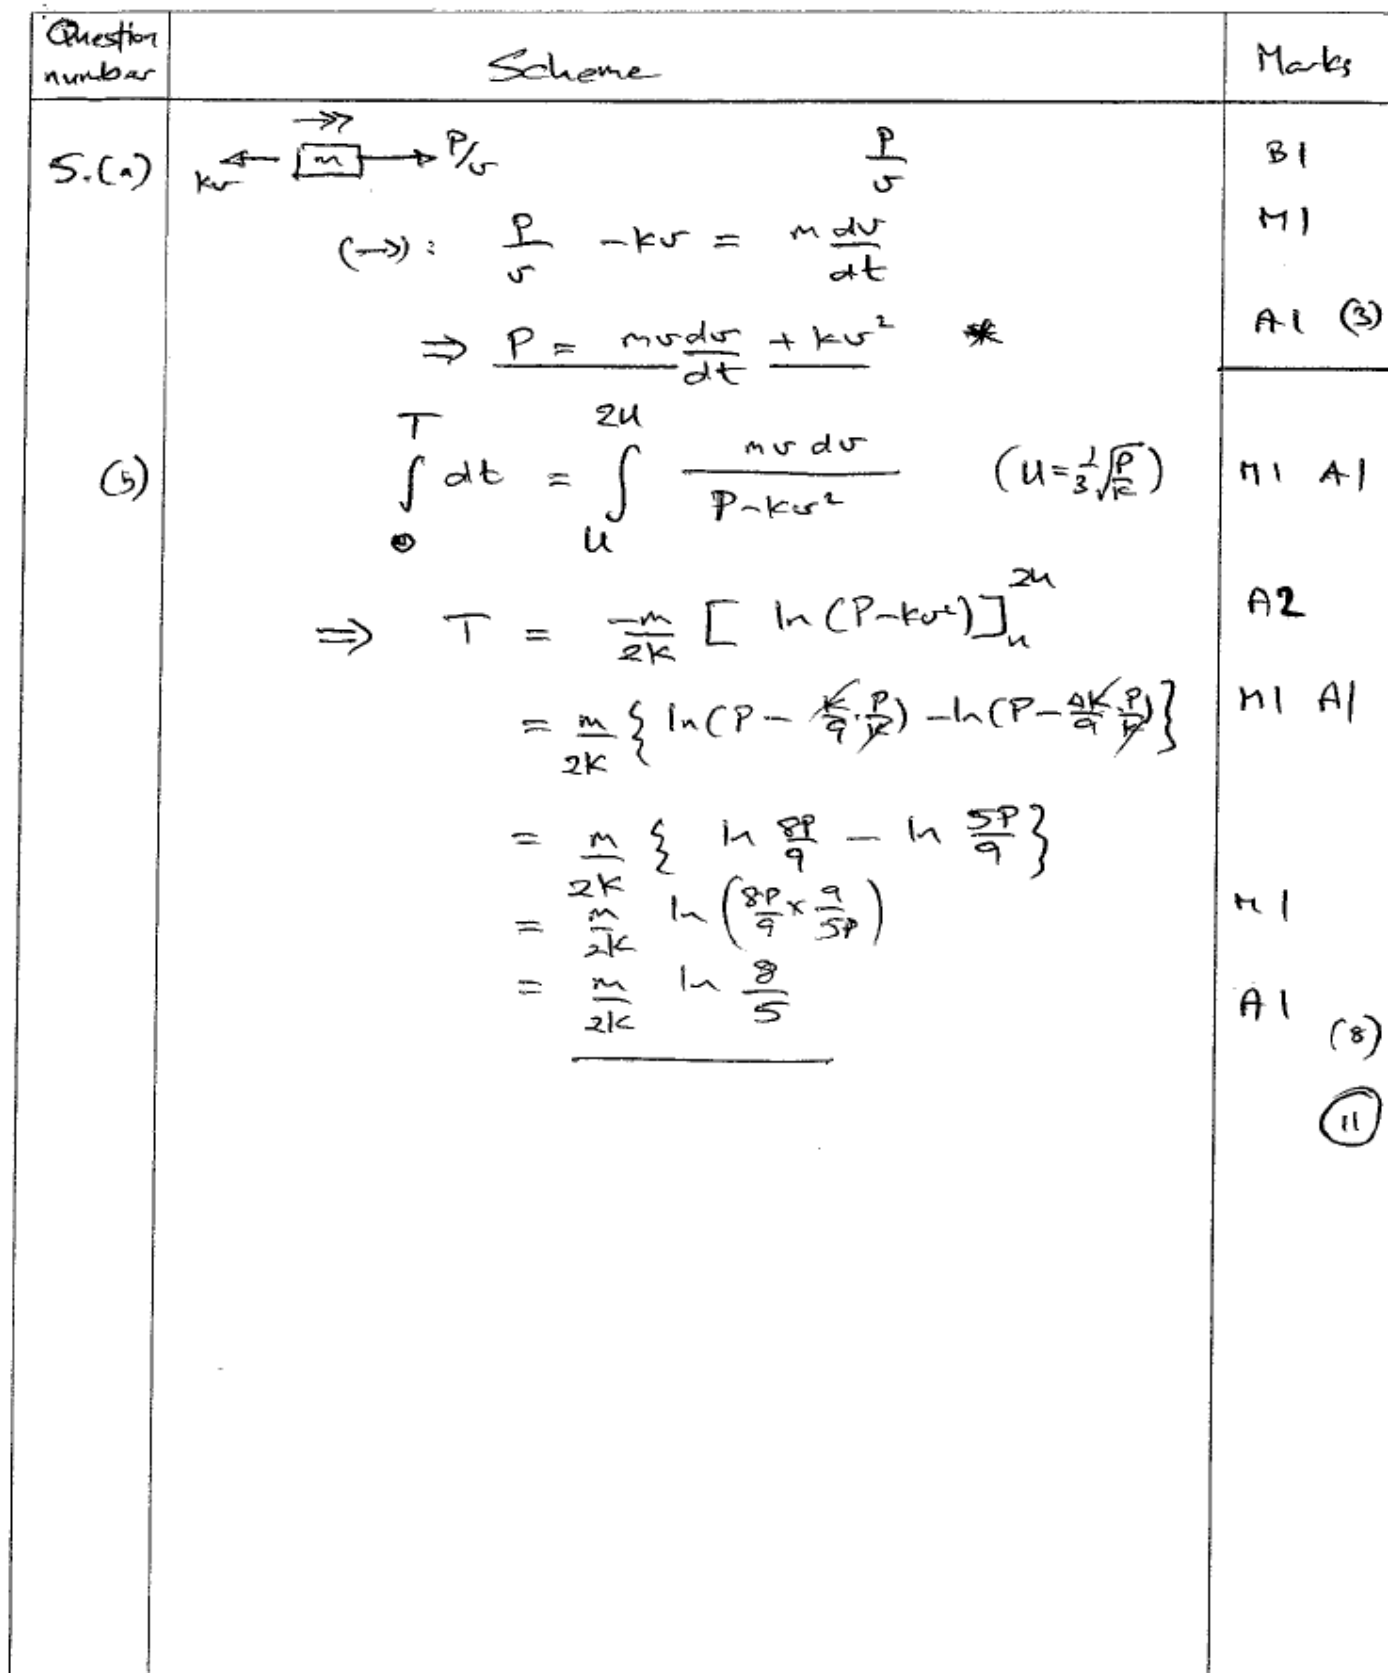 Question number Scheme Marks
5.(a) kv m P/v P/v B1
(→): P/v - kv = m dv/dt M1
⇒ P = mv dv/dt + kv² * A1 (3)
(b) ∫₀ᵀ dt = ∫ᵤ²ᵘ mv dv / (P-kv²) (U = 1/3 √(P/k)) M1 A1
⇒ T = -m/2k [ ln(P-kv²) ]ᵤ²ᵘ A2
= m/2k { ln(P - k/9 · P/k) - ln(P - 4k/9 · P/k) } M1 A1
= m/2k { ln 8P/9 - ln 5P/9 }
= m/2k ln (8P/9 × 9/5P) M1
= m/2k ln 8/5 A1 (8)
11